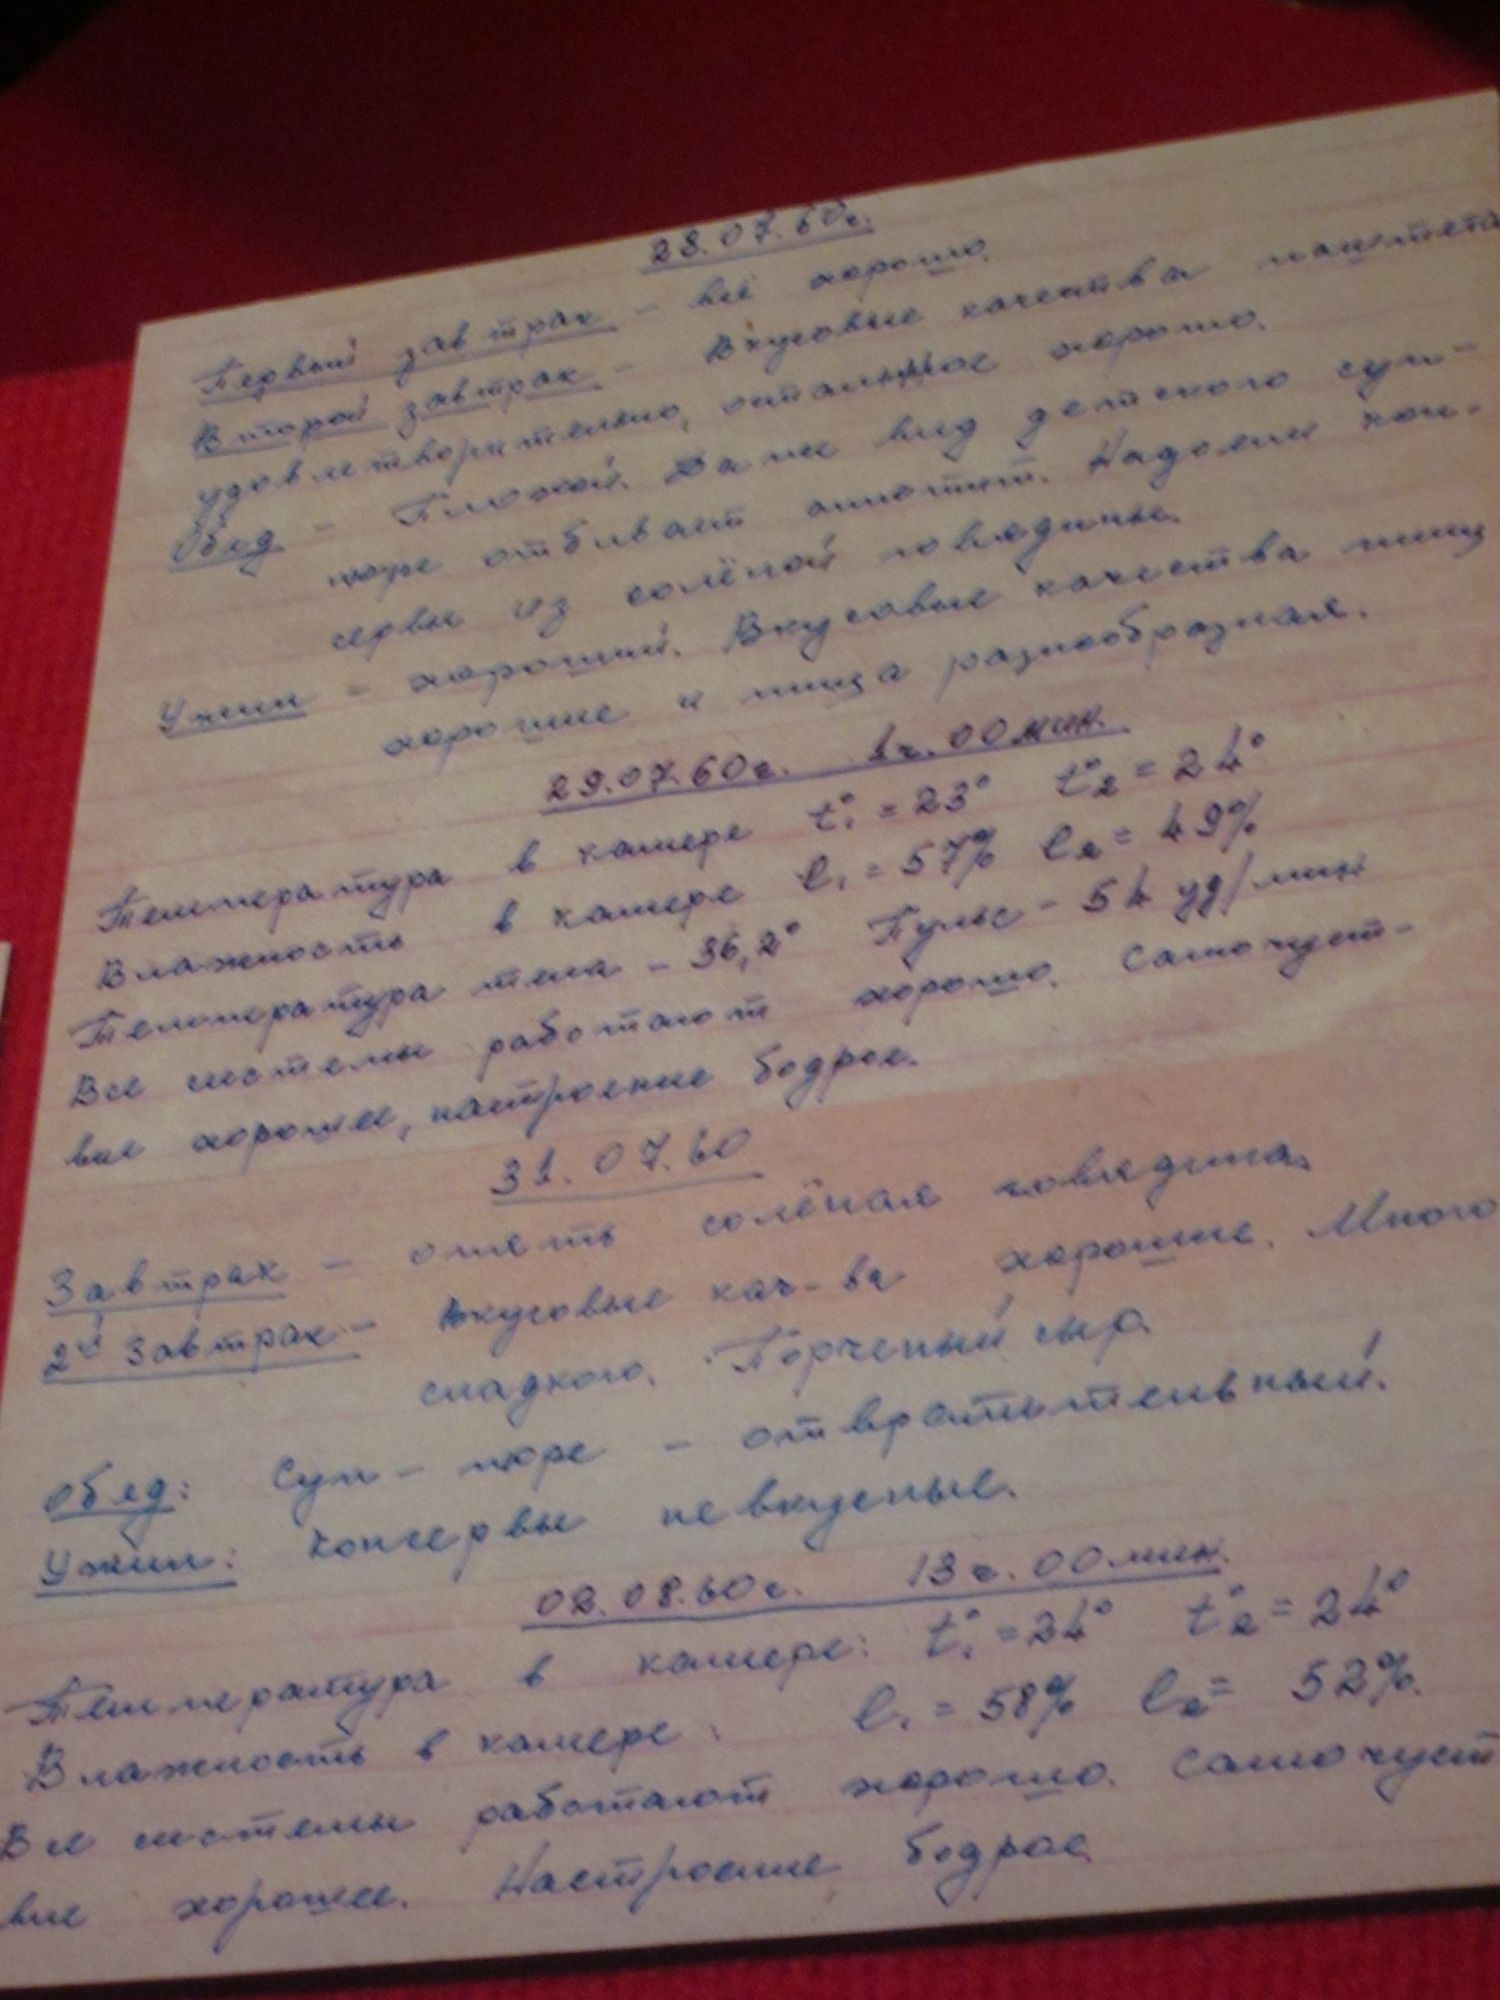 28.07.60г.
Первый завтрак - всё хорошо.
Второй завтрак - Вкусовые качества паштета
удовлетворительно, остальное хорошо.
Обед - Плохой. Даже вид детского суп-
пюре отбивает аппетит. Надоели кон-
сервы из солёной говядины.
Ужин - хороший. Вкусовые качества пищи
хорошие и пища разнообразная.
29.07.60г. 1ч. 00 мин.
Температура в камере t°₁ = 23° t°₂ = 24°
Влажность в камере l₁ = 57% l₂ = 49%
Температура тела - 36,2° Пульс - 54 уд/мин
Все системы работают хорошо. Самочуст-
вие хорошее, настроение бодрое.
31.07.60
Завтрак - опять солёная говядина.
2ой завтрак - Вкусовые кач-ва хорошие. Много
сладкого. Порченый сыр.
Обед: Суп-пюре - отвратительный.
Ужин: Консервы невкусные.
02.08.60г. 13ч. 00 мин.
Температура в камере: t°₁ = 24° t°₂ = 24°
Влажность в камере: l₁ = 58% l₂ = 52%.
Все системы работают хорошо. Самочуст
вие хорошее. Настроение бодрое